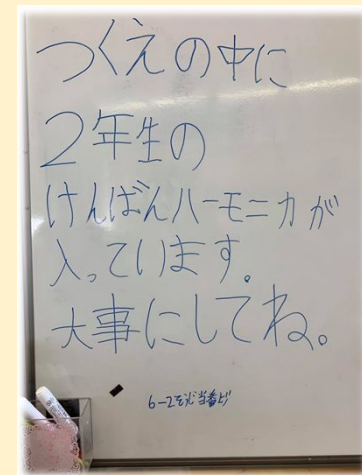 つくえの中に
2年生の
けんばんハーモニカが
入っています。
大事にしてね。
6-2そうじ当番より